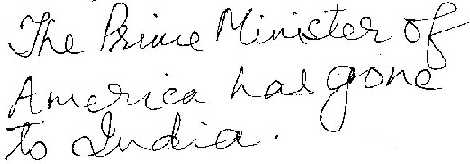 The Prime Minister of
America has gone
to India.